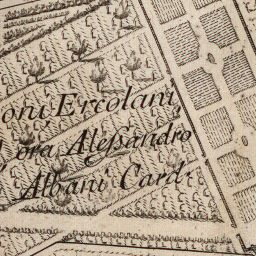 oni Ercolani
ora Alessandro
Albani Card: